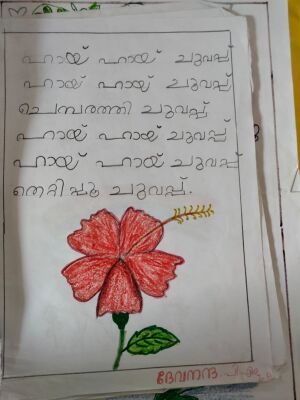 ഹായ് ഹായ് ചുവപ്പ്
ഹായ് ഹായ് ചുവപ്പ്
ചെമ്പരത്തി ചുവപ്പ്
ഹായ് ഹായ് ചുവപ്പ്
ഹായ് ഹായ് ചുവപ്പ്
തെറ്റിപ്പൂ ചുവപ്പ്.
ദേവനന്ദ.